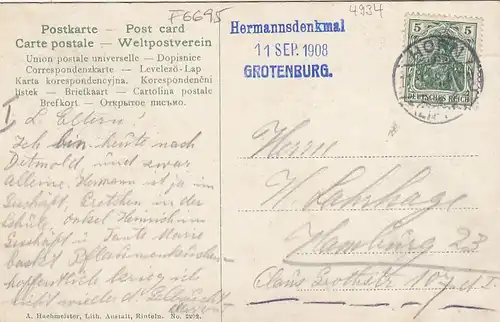 F6695
4934
Postkarte — Post card
Carte postale — Weltpostverein
Union postale universelle — Dopisnice
Correspondenzkarte — Levelező-Lap
Karta korespondencyjna. Korespondenční
listek — Briefkaart — Cartolina postale
Brefkort — Открытое письмо.
Hermannsdenkmal
11 SEP. 1908
GROTENBURG.
5 5
DEUTSCHES REICH
HORN
I
L. Eltern!
Ich bin heute nach
Detmold, und zwar
alleine. Hermann ist ja im
Geschäft, Gretchen in der
Schule, Onkel Heinrich im
Geschäft u. Tante Marie
backt Pflaumenkuchen.
hoffentlich kriege ich
nicht wieder d.
Herrn
H. Lahrhage
Hamburg 23
Claus Grothstr 107
A. Hochmeister, Lith. Anstalt, Rinteln. No.